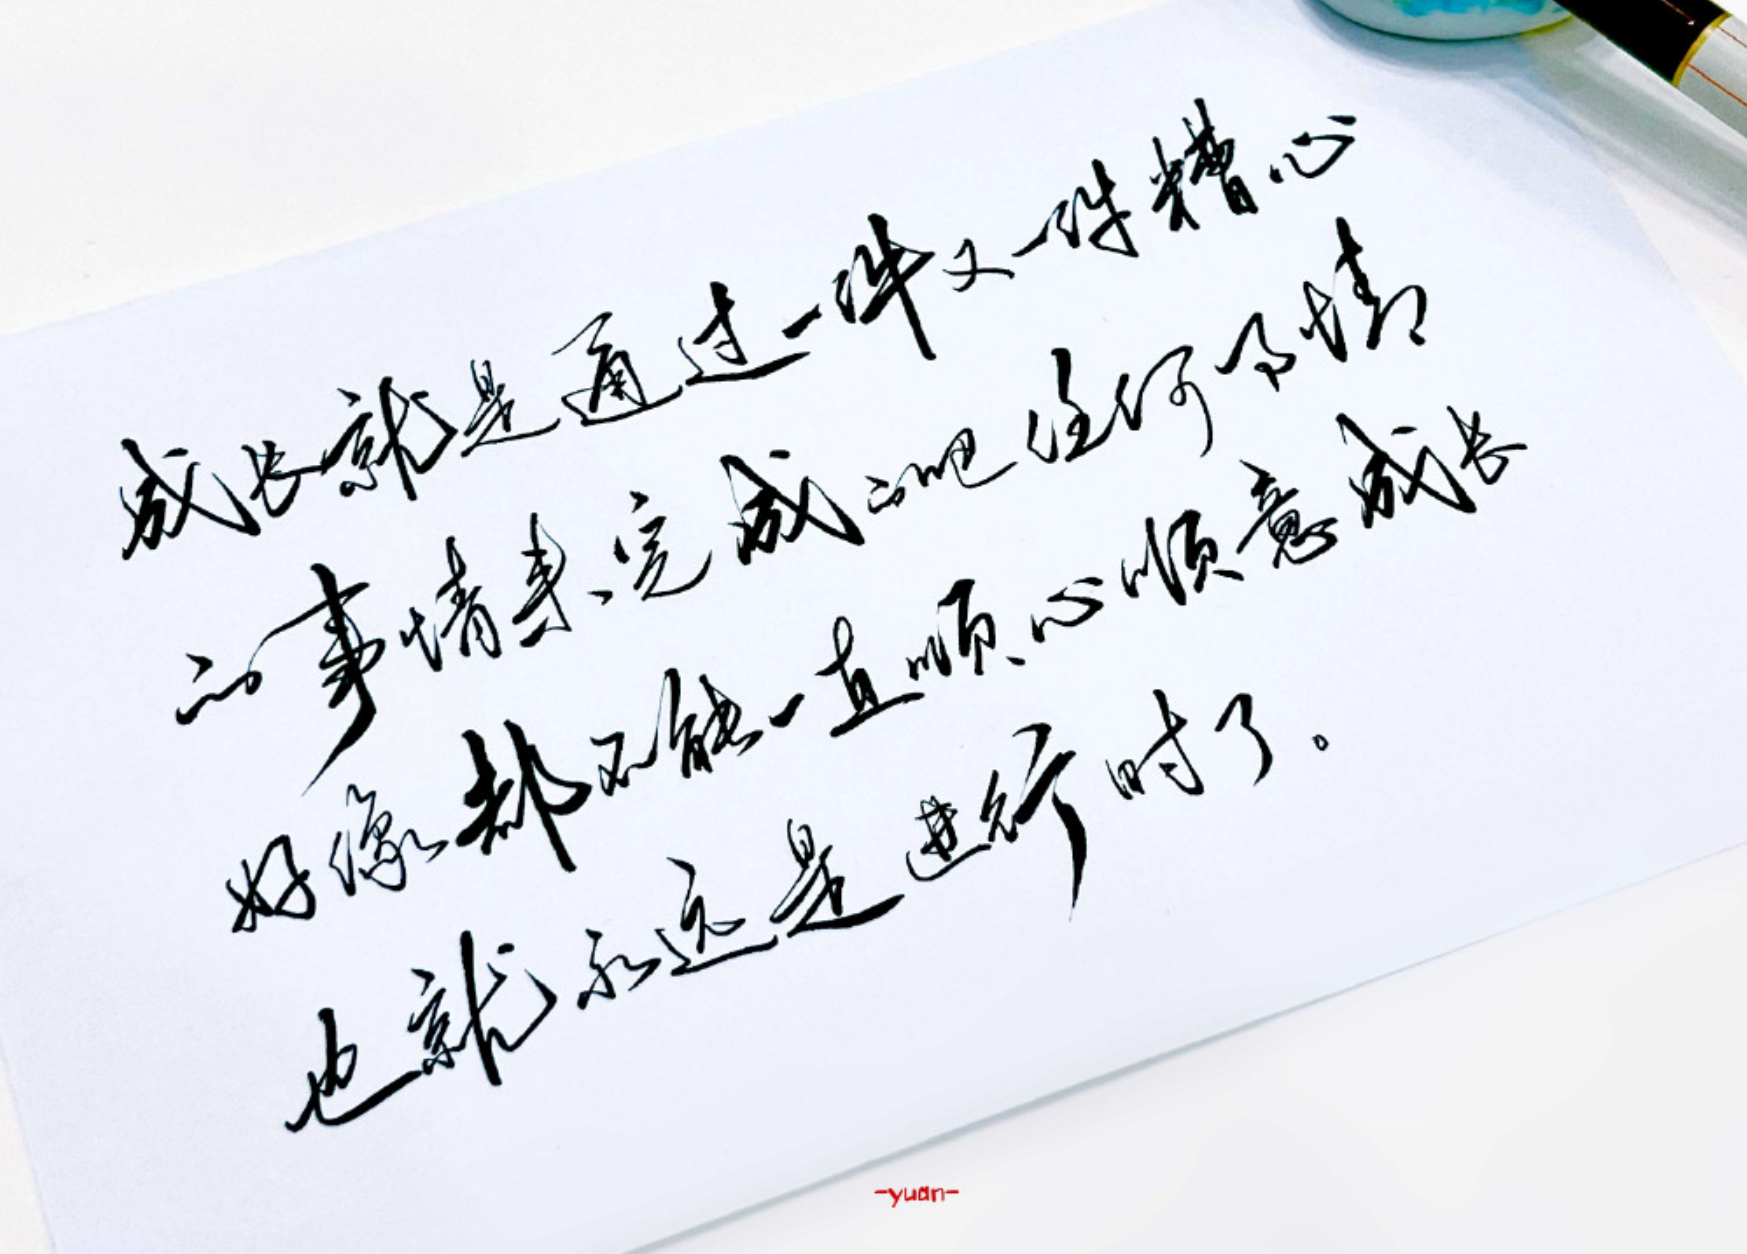 成长就是通过一件又一件糟心
的事情来完成的吧任何事情
好像都不能一直顺心顺意成长
也就永远是进行时了。
-yuan-